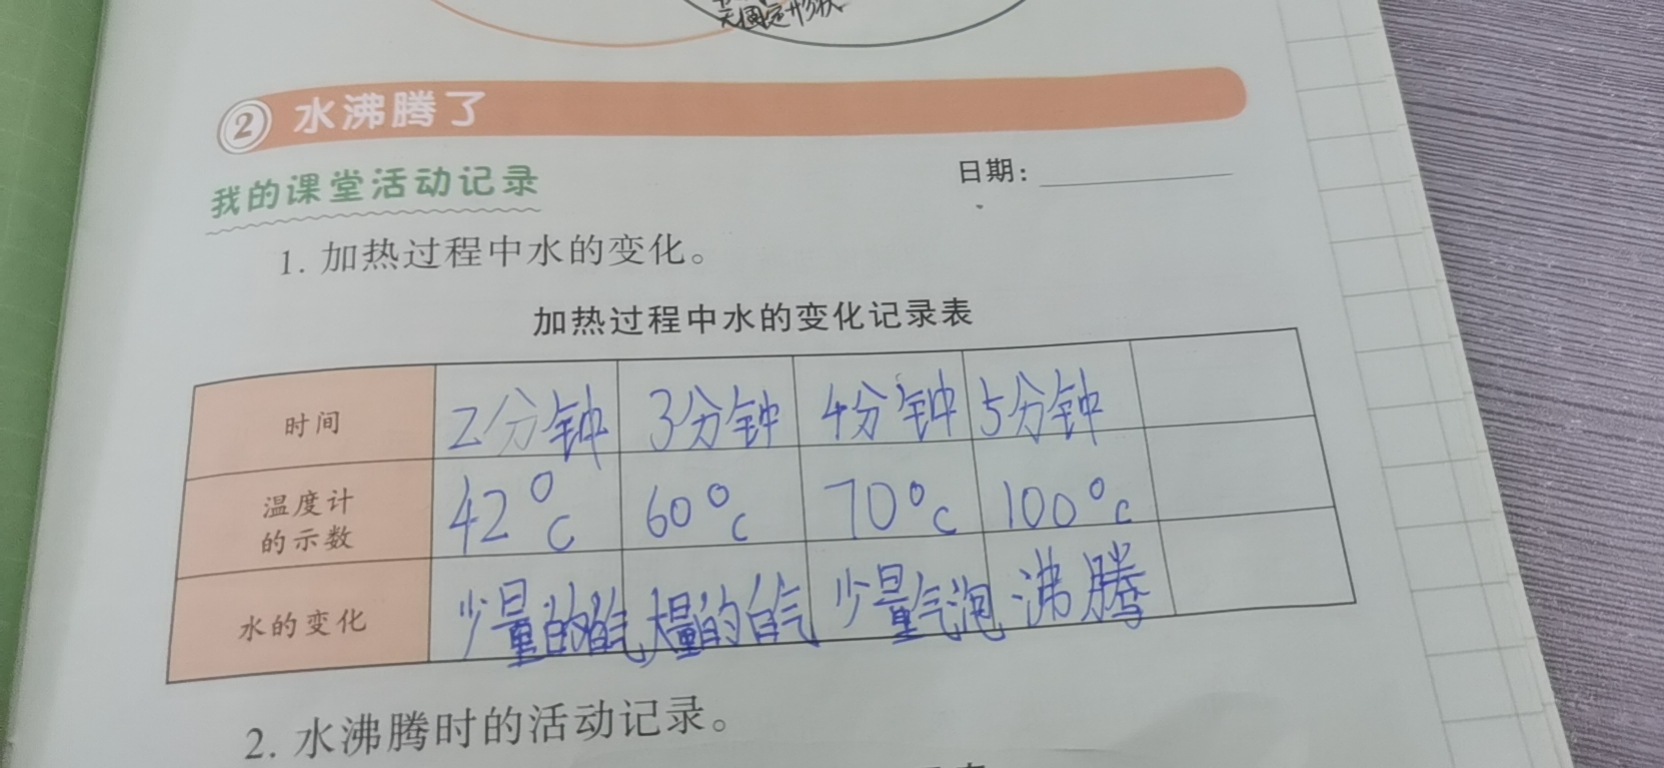 无固定形状
2 水沸腾了
我的课堂活动记录
日期:
1. 加热过程中水的变化。
加热过程中水的变化记录表
时间 2分钟 3分钟 4分钟 5分钟
温度计的示数 42℃ 60℃ 70℃ 100℃
水的变化 少量的白气 大量的白气 少量气泡 沸腾
2. 水沸腾时的活动记录。